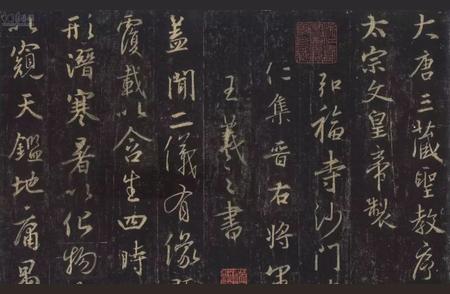 大唐三藏聖教序
太宗文皇帝製
弘福寺沙门
仁集晋右將軍
王羲之書
盖聞二儀有像
覆載以含生四時
形潛寒暑以化物
以窺天鑑地庸愚